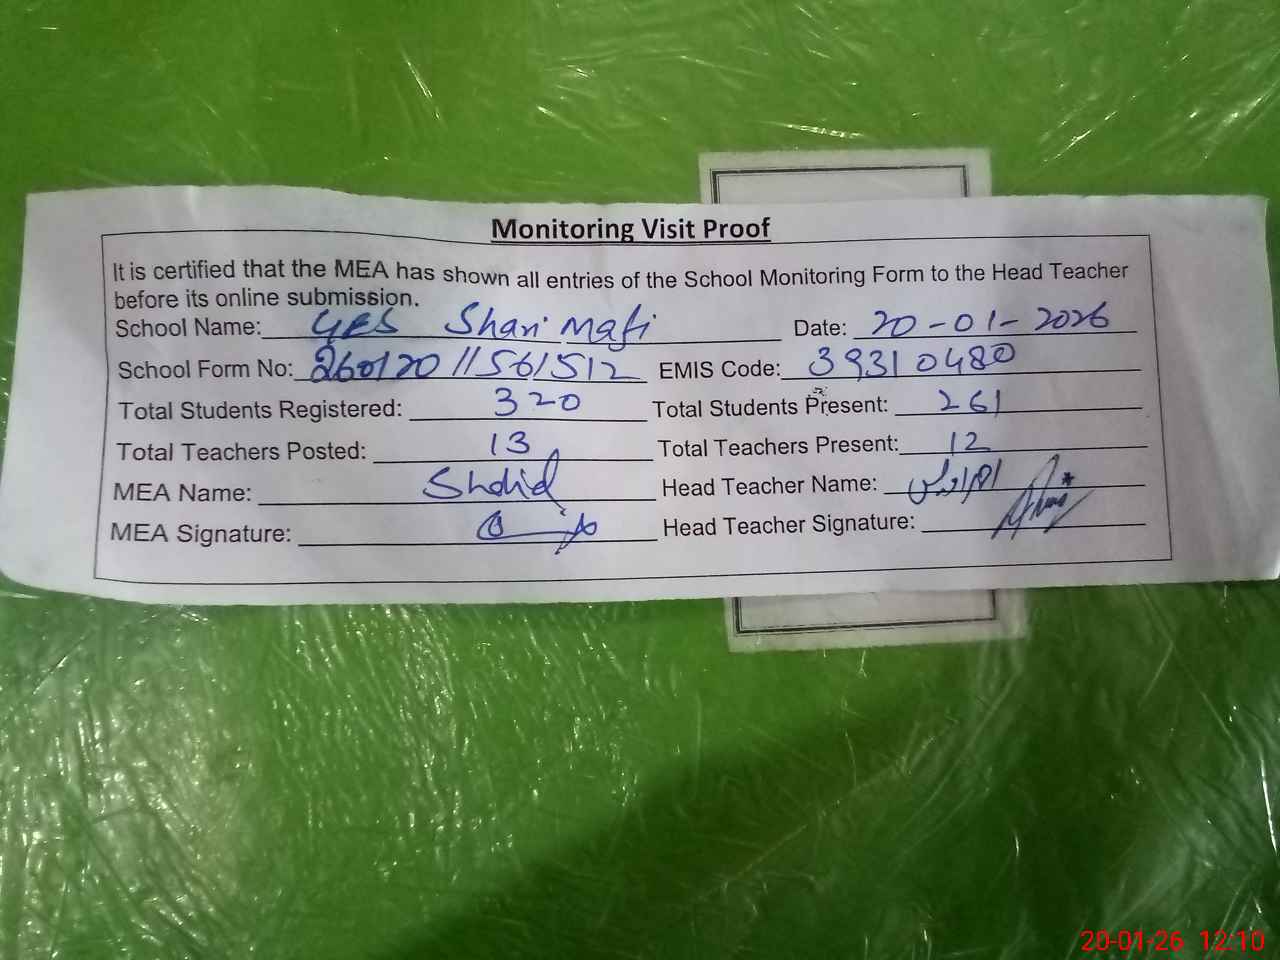 Monitoring Visit Proof
It is certified that the MEA has shown all entries of the School Monitoring Form to the Head Teacher
before its online submission.
School Name: GES Shari Mafi Date: 20-01-2026
School Form No: 26012011561512 EMIS Code: 39310480
Total Students Registered: 320 Total Students Present: 261
Total Teachers Posted: 13 Total Teachers Present: 12
MEA Name: Shahid Head Teacher Name:
MEA Signature: Head Teacher Signature:
20-01-26 12:10